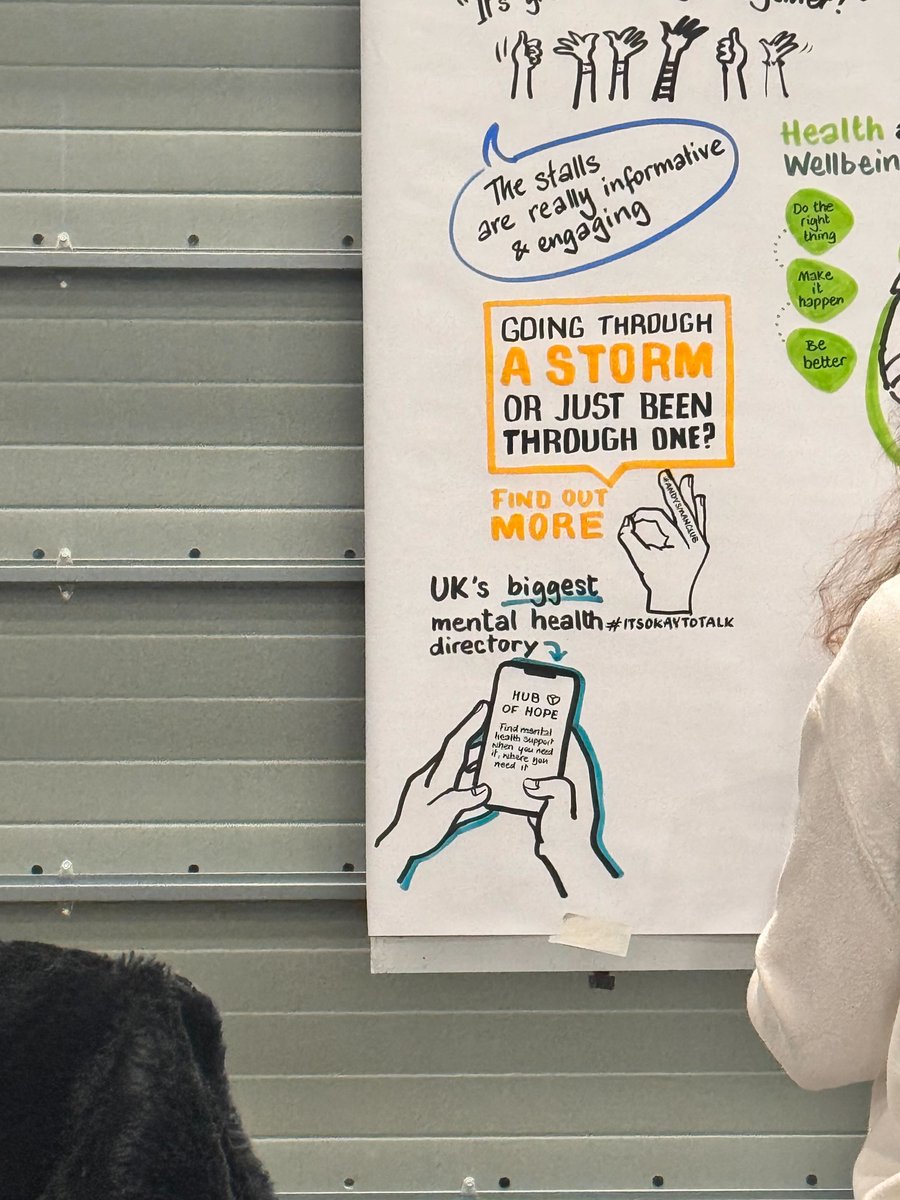 "It's
The stalls
are really informative
& engaging
Health
Wellbein
Do the
right
thing
Make
it
happen
Be
better
GOING THROUGH
A STORM
OR JUST BEEN
THROUGH ONE?
FIND OUT
MORE
#ANDYSMANCLUB
#ITSOKAYTOTALK
UK's biggest
mental health
directory
HUB
OF HOPE
Find mental
health support
when you need
it, where you
need it